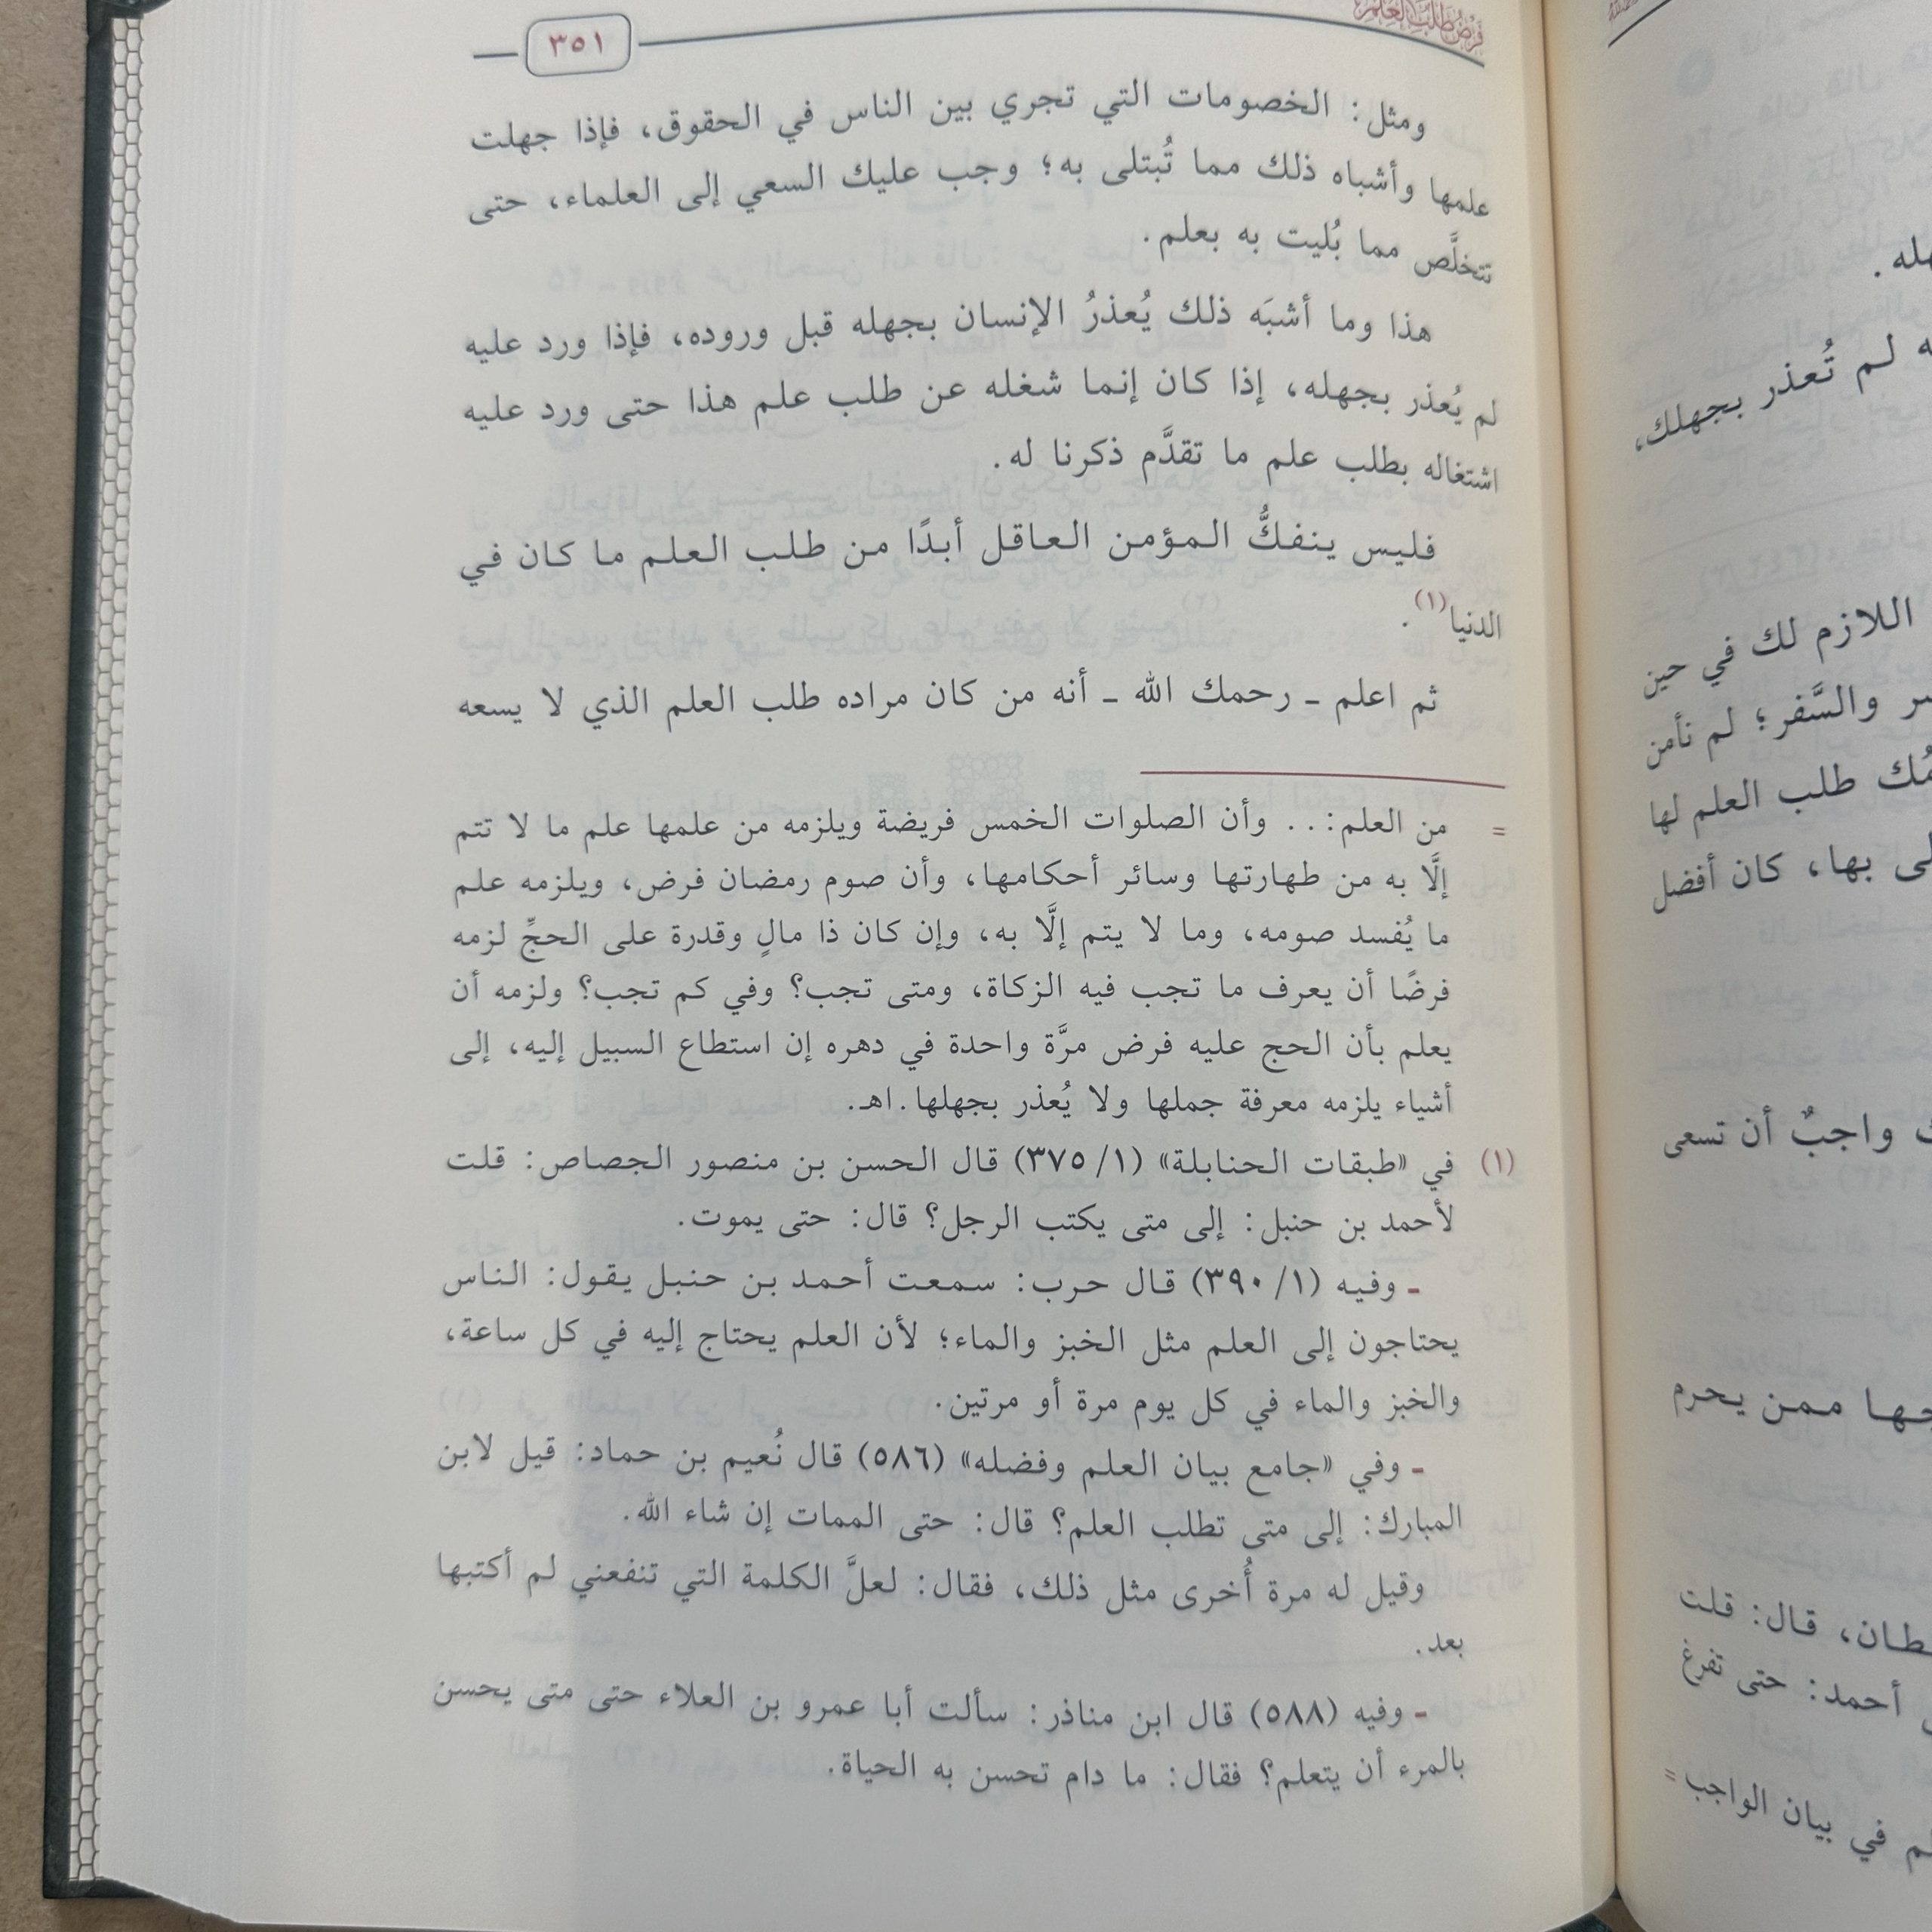 فرض طلب العلم
٣٥١
ومثل: الخصومات التي تجري بين الناس في الحقوق، فإذا جهلت
علمها وأشباه ذلك مما تُبتلى به؛ وجب عليك السعي إلى العلماء، حتى
تتخلَّص مما بُليت به بعلم.
هذا وما أشبَه ذلك يُعذرُ الإنسان بجهله قبل وروده، فإذا ورد عليه
لم يُعذر بجهله، إذا كان إنما شغله عن طلب علم هذا حتى ورد عليه
اشتغاله بطلب علم ما تقدَّم ذكرنا له.
فليس ينفكُّ المؤمن العاقل أبدًا من طلب العلم ما كان في
الدنيا(١).
ثم اعلم ـ رحمك الله ـ أنه من كان مراده طلب العلم الذي لا يسعه
= من العلم:.. وأن الصلوات الخمس فريضة ويلزمه من علمها علم ما لا تتم
إلَّا به من طهارتها وسائر أحكامها، وأن صوم رمضان فرض، ويلزمه علم
ما يُفسد صومه، وما لا يتم إلَّا به، وإن كان ذا مالٍ وقدرة على الحجِّ لزمه
فرضًا أن يعرف ما تجب فيه الزكاة، ومتى تجب؟ وفي كم تجب؟ ولزمه أن
يعلم بأن الحج عليه فرض مرَّة واحدة في دهره إن استطاع السبيل إليه، إلى
أشياء يلزمه معرفة جملها ولا يُعذر بجهلها.اهـ.
(١) في «طبقات الحنابلة» (٣٧٥/١) قال الحسن بن منصور الجصاص: قلت
لأحمد بن حنبل: إلى متى يكتب الرجل؟ قال: حتى يموت.
ـ وفيه (٣٩٠/١) قال حرب: سمعت أحمد بن حنبل يقول: الناس
يحتاجون إلى العلم مثل الخبز والماء؛ لأن العلم يحتاج إليه في كل ساعة،
والخبز والماء في كل يوم مرة أو مرتين.
ـ وفي «جامع بيان العلم وفضله» (٥٨٦) قال نُعيم بن حماد: قيل لابن
المبارك: إلى متى تطلب العلم؟ قال: حتى الممات إن شاء الله.
وقيل له مرة أُخرى مثل ذلك، فقال: لعلَّ الكلمة التي تنفعني لم أكتبها
بعد.
ـ وفيه (٥٨٨) قال ابن مناذر: سألت أبا عمرو بن العلاء حتى متى يحسن
بالمرء أن يتعلم؟ فقال: ما دام تحسن به الحياة.
لم تُعذر بجهلك،
اللازم لك في حين
والسَّفر؛ لم نأمن
طلب العلم لها
بها، كان أفضل
واجبٌ أن تسعى
ممن يحرم
قال: قلت
أحمد: حتى تفرغ
في بيان الواجب =